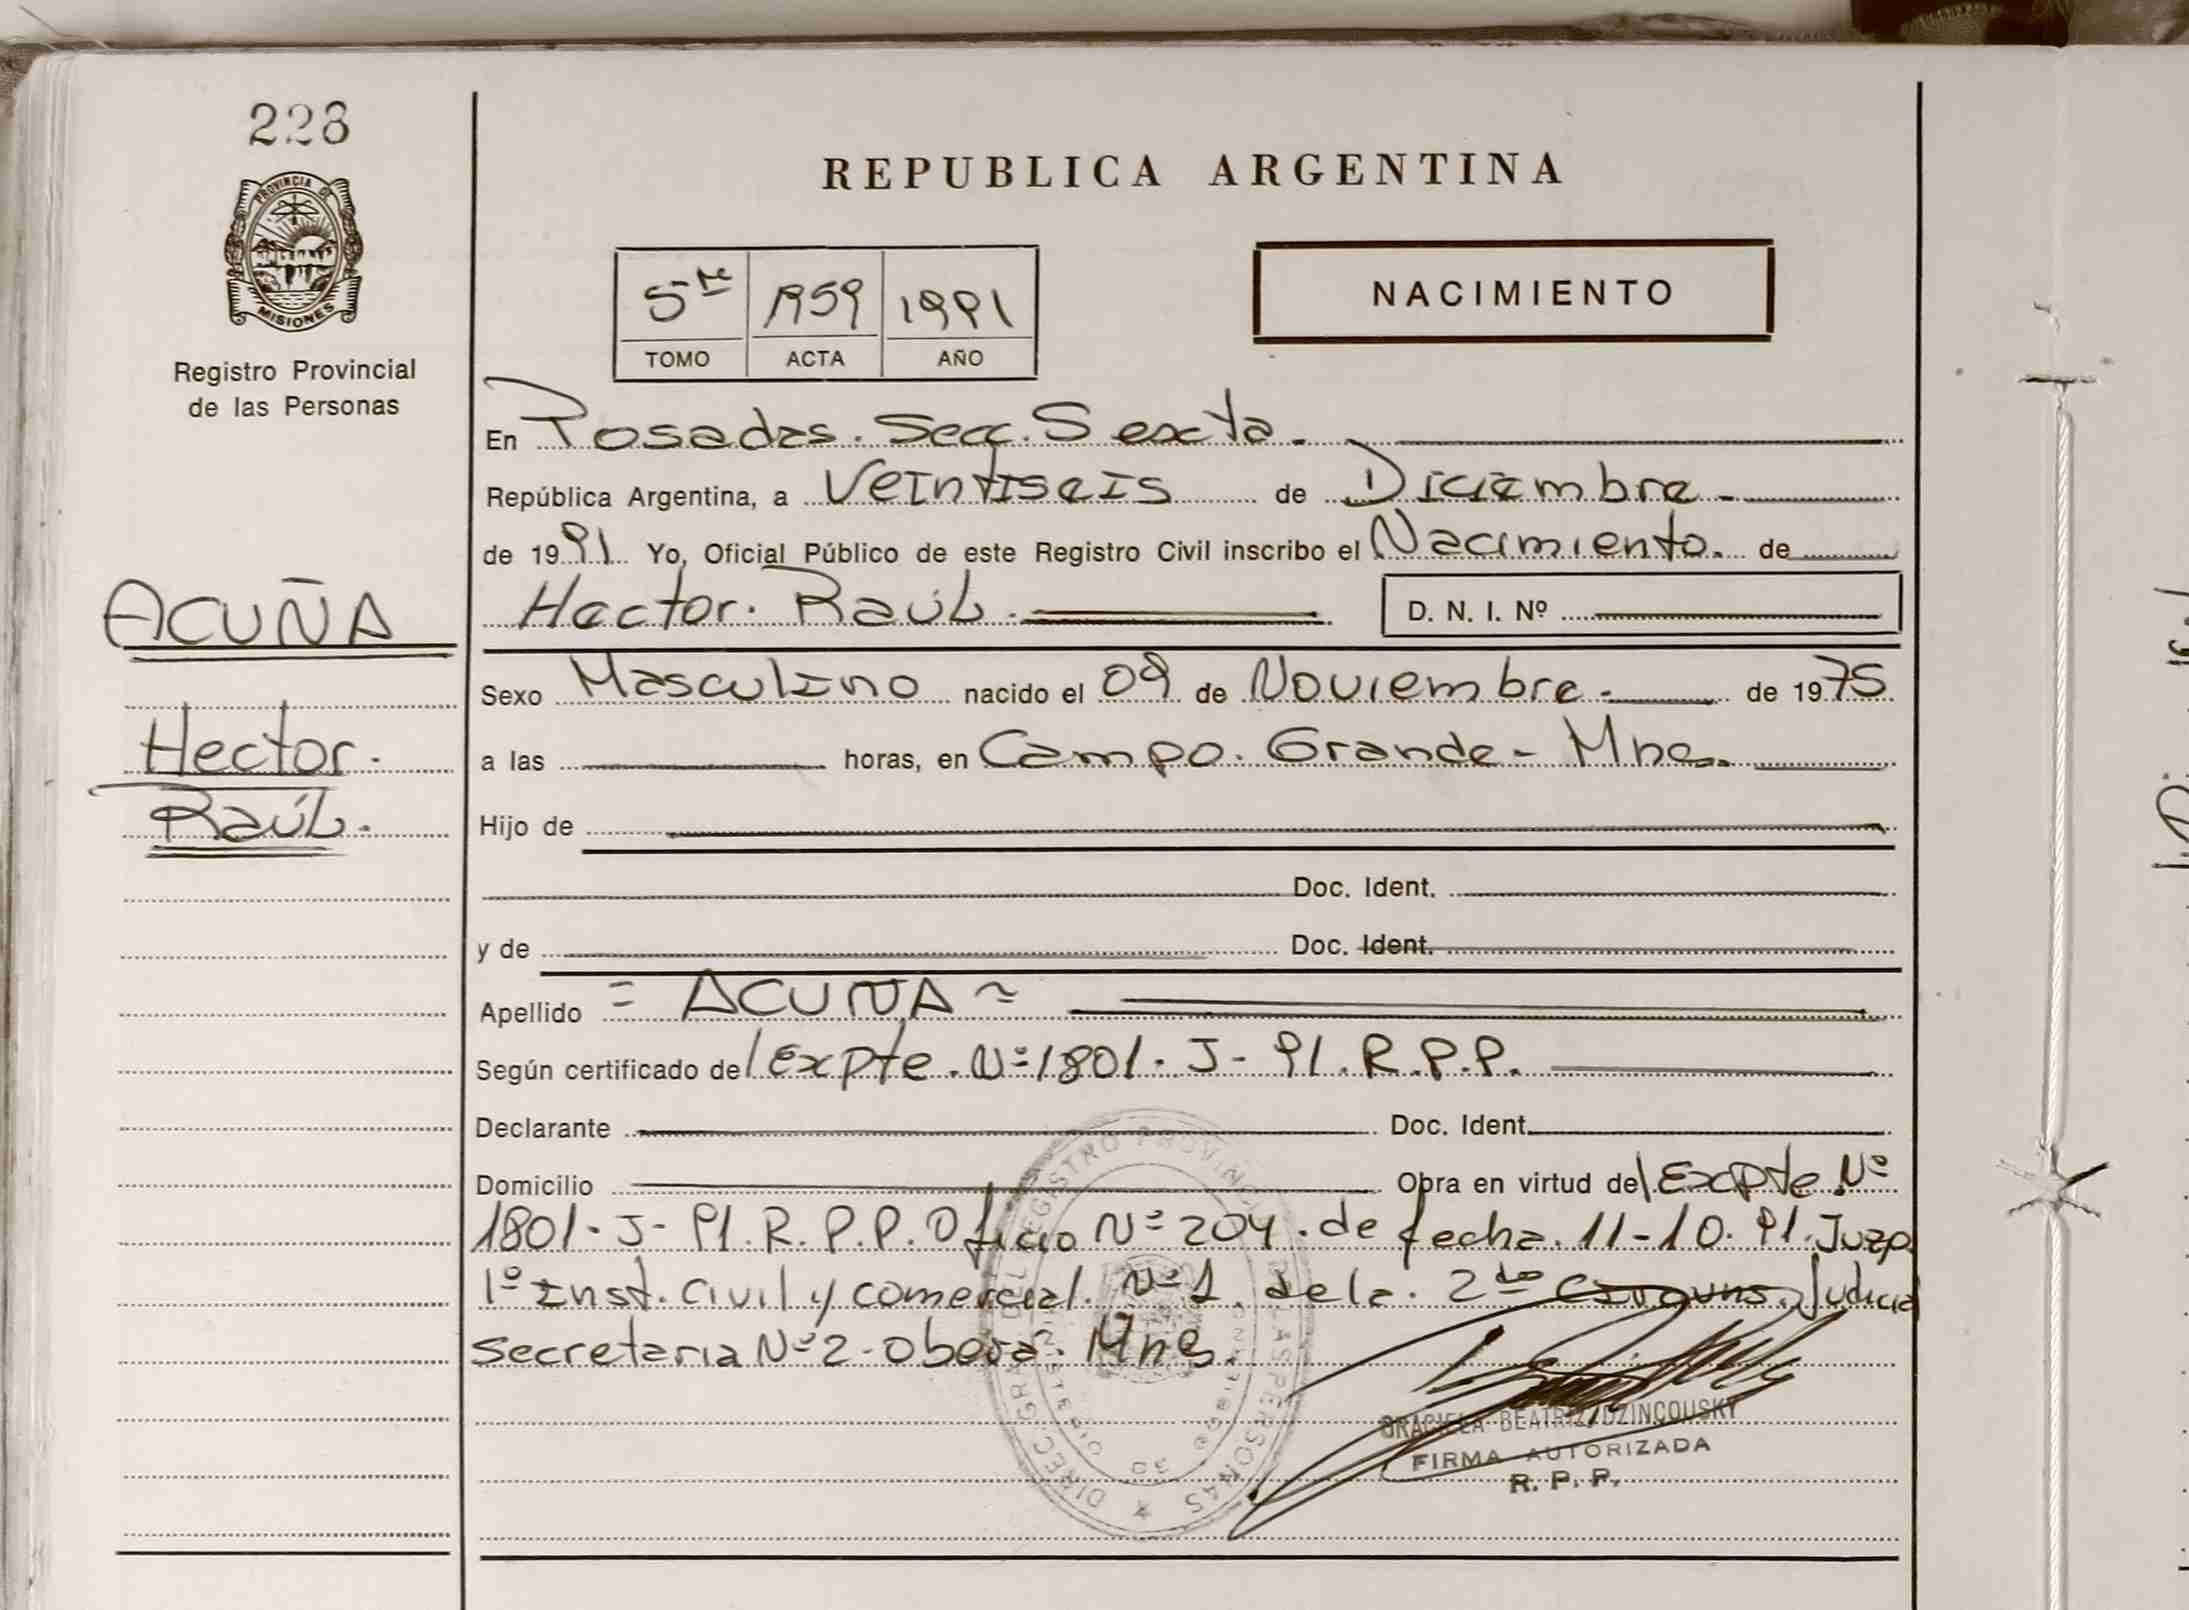 228
PROVINCIA DE
MISIONES
Registro Provincial
de las Personas
REPUBLICA ARGENTINA
5to 1959 1991
TOMO ACTA AÑO
NACIMIENTO
En Posadas. Secc. Sexta.
República Argentina, a Veintiseis de Diciembre
de 1991 Yo, Oficial Público de este Registro Civil inscribo el Nacimiento. de
Hector. Raúl. D. N. I. Nº
ACUÑA
Hector.
Raúl.
Sexo Masculino nacido el 09 de Noviembre. de 1975
a las horas, en Campo. Grande - Mnes.
Hijo de
Doc. Ident.
y de Doc. Ident.
Apellido = ACUÑA =
Según certificado del Expte. Nº 1801. J - 91. R.P.P.
Declarante Doc. Ident.
Domicilio Obra en virtud del Expte. Nº
1801. J - 91. R. P. P. Oficio Nº 204. de fecha. 11-10. 91. Juzg.
1º Inst. Civil y comercial. Nº 1. de la. 2da Circuns. Judicial
Secretaria Nº 2 - Oberá. Mnes.
DIREC. GRAL. DEL REGISTRO PROVINCIAL DE LAS PERSONAS
GRACIELA BEATRIZ DZINCOUSKY
FIRMA AUTORIZADA
R. P. P.